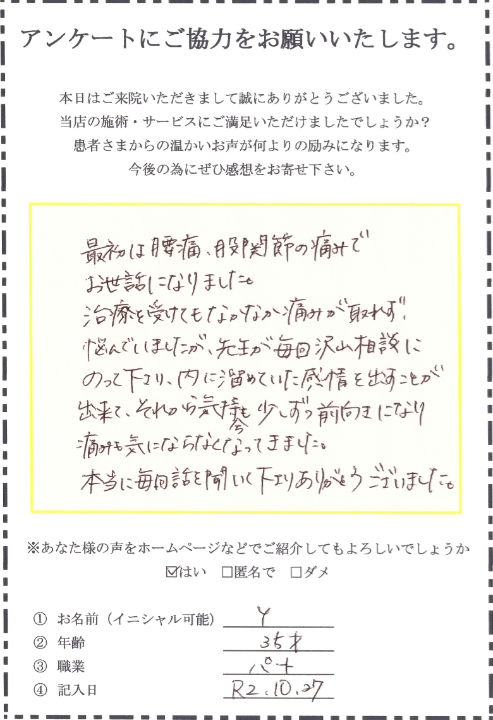 アンケートにご協力をお願いいたします。
本日はご来院いただきまして誠にありがとうございました。
当店の施術・サービスにご満足いただけましたでしょうか？
患者さまからの温かいお声が何よりの励みになります。
今後の為にぜひ感想をお寄せ下さい。
最初は腰痛、股関節の痛みで
お世話になりました。
治療を受けてもなかなか痛みが取れず、
悩んでいましたが、先生が毎回沢山相談に
のって下さり、内に溜めていた感情を出すことが
出来て、それから気持ちも少しずつ前向きになり
痛みも気にならなくなってきました。
本当に毎回話を聞いて下さりありがとうございました。
※あなた様の声をホームページなどでご紹介してもよろしいでしょうか
☑はい □匿名で □ダメ
① お名前（イニシャル可能） Y
② 年齢 35才
③ 職業 パート
④ 記入日 R2.10.27